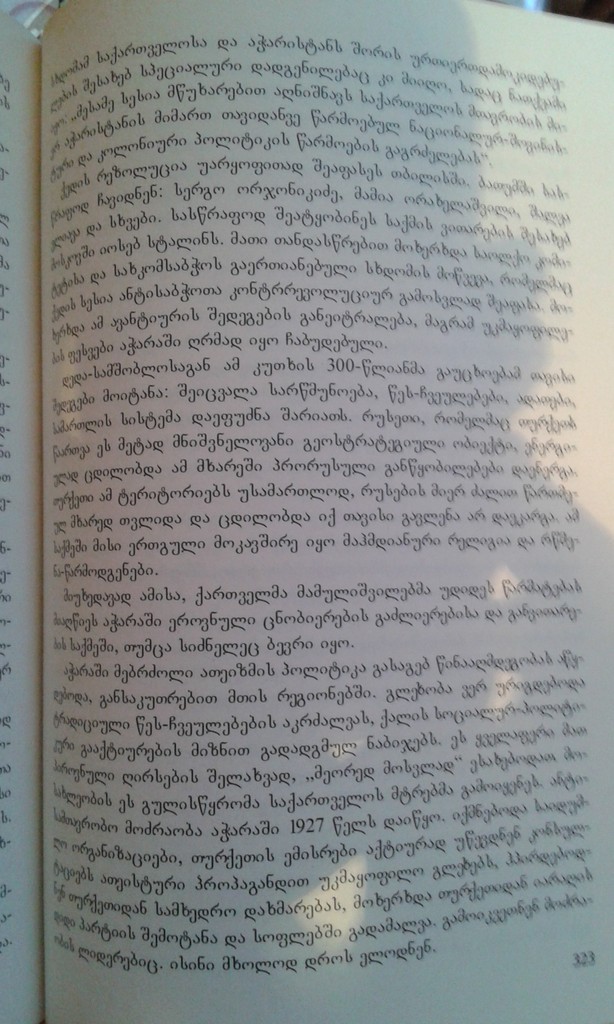 სხდომამ საქართველოსა და აჭარისტანს შორის ურთიერთდამოკიდებუ-
ლების შესახებ სპეციალური დადგენილებაც კი მიიღო, სადაც ნათქვამი
იყო: „მესამე სესია მწუხარებით აღნიშნავს საქართველოს მთავრობის მი-
ერ აჭარისტანის მიმართ თავიდანვე წარმოებულ ნაციონალურ-შოვინის-
ტური და კოლონიური პოლიტიკის წარმოების გაგრძელებას“.
ქედის რეზოლუცია უარყოფითად შეაფასეს თბილისში. ბათუმში სას-
წრაფოდ ჩავიდნენ: სერგო ორჯონიკიძე, მამია ორახელაშვილი, შალვა
ელიავა და სხვები. სასწრაფოდ შეატყობინეს საქმის ვითარების შესახებ
მოსკოვში იოსებ სტალინს. მათი თანდასწრებით მოხერხდა საოლქო კომი-
ტეტისა და სახკომსაბჭოს გაერთიანებული სხდომის მოწვევა, რომელმაც
ქედის სესია ანტისაბჭოთა კონტრრევოლუციურ გამოსვლად შეაფასა. მო-
ხერხდა ამ ავანტიურის შედეგების განეიტრალება, მაგრამ უკმაყოფილე-
ბის ფესვები აჭარაში ღრმად იყო ჩაბუდებული.
დედა-სამშობლოსაგან ამ კუთხის 300-წლიანმა გაუცხოებამ თავისი
შედეგები მოიტანა: შეიცვალა სარწმუნოება, წეს-ჩვეულებები, ადათები,
სამართლის სისტემა დაეფუძნა შარიათს. რუსეთი, რომელმაც თურქეთს
წაართვა ეს მეტად მნიშვნელოვანი გეოსტრატეგიული ობიექტი, ენერგი-
ულად ცდილობდა ამ მხარეში პრორუსული განწყობილებები დაენერგა.
თურქეთი ამ ტერიტორიებს უსამართლოდ, რუსების მიერ ძალით წართმე-
ულ მხარედ თვლიდა და ცდილობდა იქ თავისი გავლენა არ დაეკარგა. ამ
საქმეში მისი ერთგული მოკავშირე იყო მაჰმადიანური რელიგია და რწმე-
ნა-წარმოდგენები.
მიუხედავად ამისა, ქართველმა მამულიშვილებმა უდიდეს წარმატებას
მიაღწიეს აჭარაში ეროვნული ცნობიერების გაძლიერებისა და განვითარე-
ბის საქმეში, თუმცა სიძნელეც ბევრი იყო.
აჭარაში მებრძოლი ათეიზმის პოლიტიკა გასაგებ წინააღმდეგობას აწყ-
დებოდა, განსაკუთრებით მთის რეგიონებში. გლეხობა ვერ ურიგდებოდა
ტრადიციული წეს-ჩვეულებების აკრძალვას, ქალის სოციალურ-პოლიტი-
კური გააქტიურების მიზნით გადადგმულ ნაბიჯებს. ეს ყველაფერი მათ
პიროვნული ღირსების შელახვად, „მეორედ მოსვლად“ ესახებოდათ. მო-
სახლეობის ეს გულისწყრომა საქართველოს მტრებმა გამოიყენეს. ანტი-
სამთავრობო მოძრაობა აჭარაში 1927 წელს დაიწყო. იქმნებოდა საიდუმ-
ლო ორგანიზაციები, თურქეთის ემისრები აქტიურად უწევდნენ კონსულ-
ტაციებს ათეისტური პროპაგანდით უკმაყოფილო გლეხებს, ჰპირდებოდ-
ნენ თურქეთიდან სამხედრო დახმარებას, მოხერხდა თურქეთიდან იარაღის
დიდი პარტიის შემოტანა და სოფლებში გადამალვა. გამოიკვეთნენ მოძრა-
ობის ლიდერებიც. ისინი მხოლოდ დროს ელოდნენ.
323